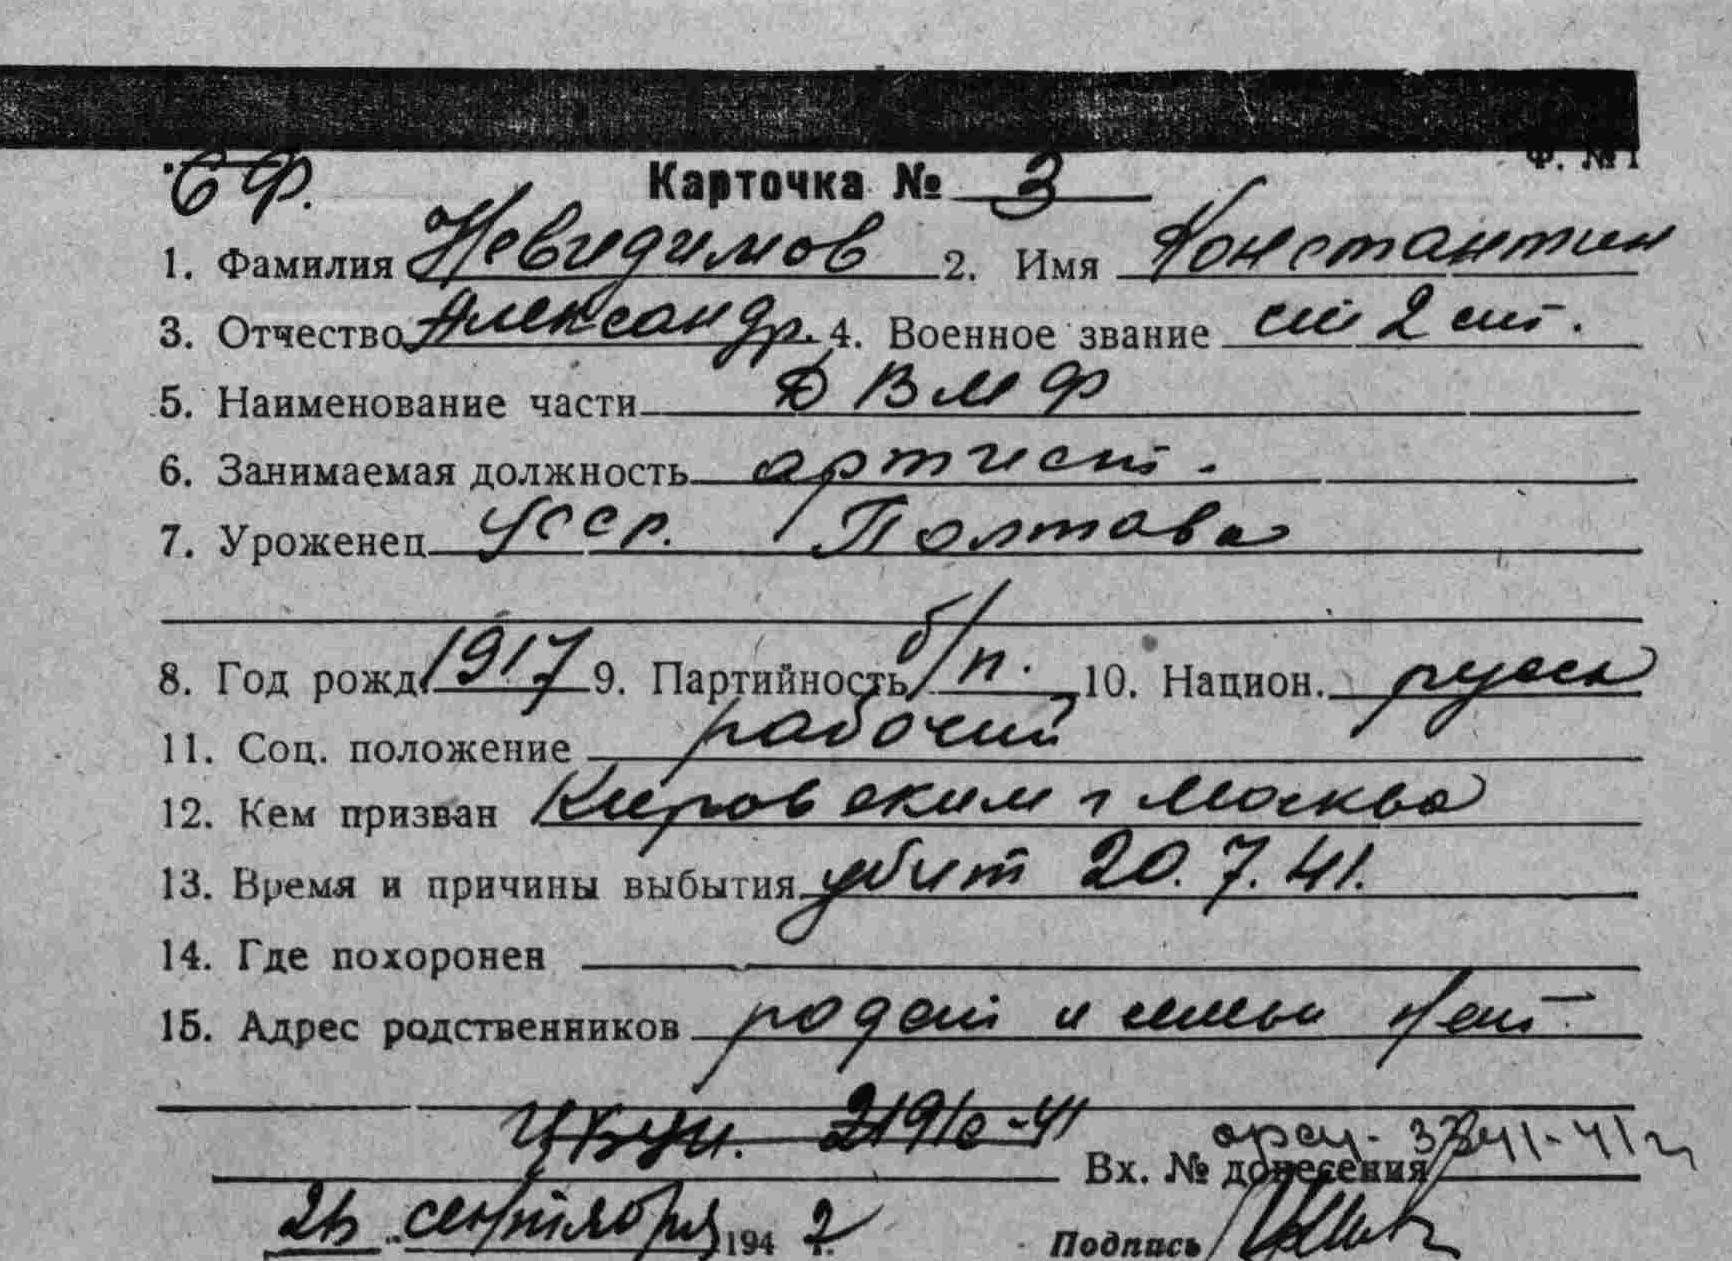 СФ.
Ф. №1
Карточка № 3
1. Фамилия Невидимов 2. Имя Константин
3. Отчество Александр. 4. Военное звание ст 2 ст.
5. Наименование части ДВМФ
6. Занимаемая должность артист.
7. Уроженец УССР. Полтава
8. Год рожд. 1917 9. Партийность б/п. 10. Национ. русск
11. Соц. положение рабочий
12. Кем призван Кировским г Москва
13. Время и причины выбытия убит 20.7.41.
14. Где похоронен
15. Адрес родственников родст и семьи нет
2191с-41
Вх. № донесения
26 сентября 1942 г.
Подпись